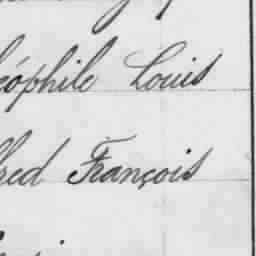 éophile Louis
red François